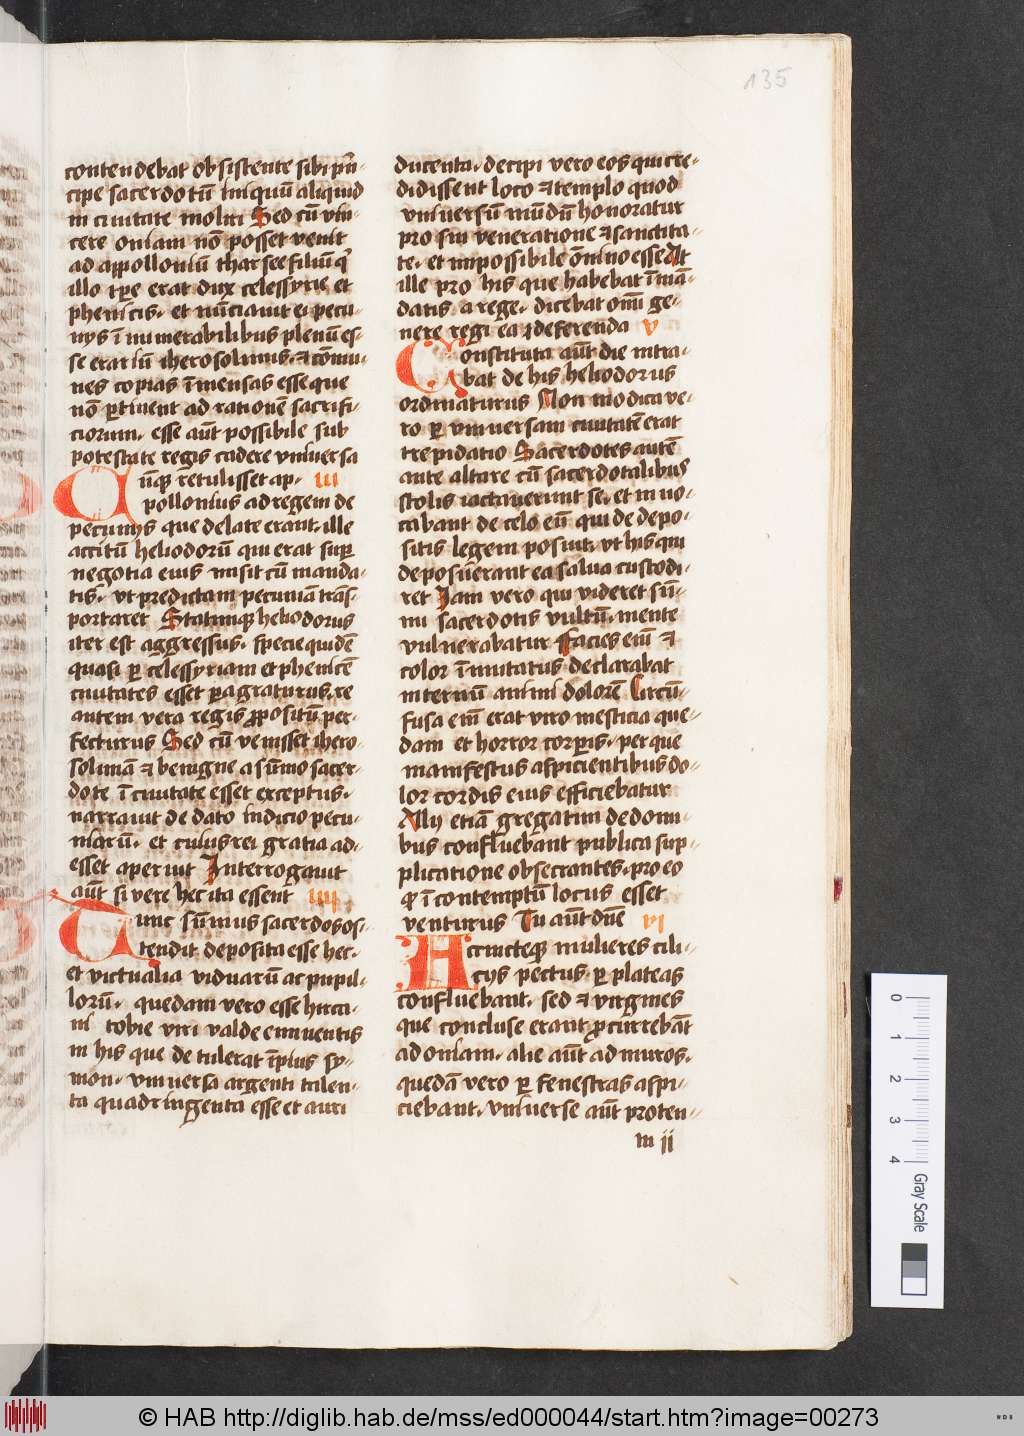 135
contendebat obsistente sibi pn̄-
cipe sacerdotū iniquū aliquid
in ciuitate moliri Sed cū vin-
cere oniam nō posset venit
ad appolloniū tharsee filiū qͥ
illo tꝑe erat dux celessyrie et
phenicis. et nūciauit ei pecu-
nijs īnumerabilibus plenū es-
se erariū iherosolimis. ⁊ cōmu-
nes copias īmensas esse que
nō ꝑtinent ad rationē sacrifi-
ciorum. esse aūt possibile sub
potestate regis cadere vniuersa
Cūqꝫ retulisset ap- iii
pollonius ad regem de
pecunijs que delate erant. ille
accitū heliodorū qui erat suꝑ
negotia eius misit cū manda-
tis. vt predictam pecuniā trās-
portaret Statimqꝫ heliodorus
iter est aggressus. specie quidē
quasi ꝑ celessyriam et phenicē
ciuitates esset ꝑagraturus. re
autem vera regis ꝓpositū per-
fecturus Sed cū venisset ihero-
solimā ⁊ benigne a sūmo sacer-
dote ī ciuitate esset exceptus.
narrauit de dato indicio pecu-
niarū. et cuius rei gratia ad-
esset aperuit Interrogauit
aūt si vere hec ita essent iiii
Tunc sūmus sacerdos os-
tendit deposita esse hec.
et victualia viduarū ac pupil-
lorū. quedam vero esse hirca-
ni tobie viri valde eminentis
in his que detulerat īpius sy-
mon. vniuersa argenti talen-
ta quadringenta esse et auri
ducenta. decipi vero eos qui cre-
didissent loco ⁊ templo quod
vniuersū mūdū honoratur
pro sui veneratione ⁊ sanctita-
te. et impossibile ōnino esse At
ille pro his que habebat ī mā-
datis a rege. dicebat om̄i ge-
nere regi ea deferenda v
Constituta aūt die intra-
bat de his heliodorus
ordinaturus Non modica ve-
ro ꝑ vniuersam ciuitatē erat
trepidatio Sacerdotes autē
ante altare cū sacerdotalibus
stolis iactauerunt se. et inuo-
cabant de celo eū qui de depo-
sitis legem posuit. vt his qui
deposuerant ea salua custodi-
ret Iam vero qui videret sū-
mi sacerdotis vultū. mente
vulnerabatur Facies eni ⁊
color īmutatus declarabat
internū animi dolorē Circū-
fusa em̄ erat viro mesticia que-
dam et horror corꝑis. per que
manifestus aspicientibus do-
lor cordis eius efficiebatur
Alij etiā gregatim de domi-
bus confluebant publica sup-
plicatione obsecrantes. pro eo
qꝫ ī contemptū locus esset
venturus Tu aūt dn̄e vi
Accincteqꝫ mulieres cili-
cijs pectus. ꝑ plateas
confluebant. sed ⁊ virgines
que concluse erant ꝓcurrebāt
ad oniam. alie aūt ad muros.
quedā vero ꝑ fenestras aspi-
ciebant. vniuerse aūt proten-
m ij
0 1 2 3 4
Gray Scale
© HAB http://diglib.hab.de/mss/ed000044/start.htm?image=00273